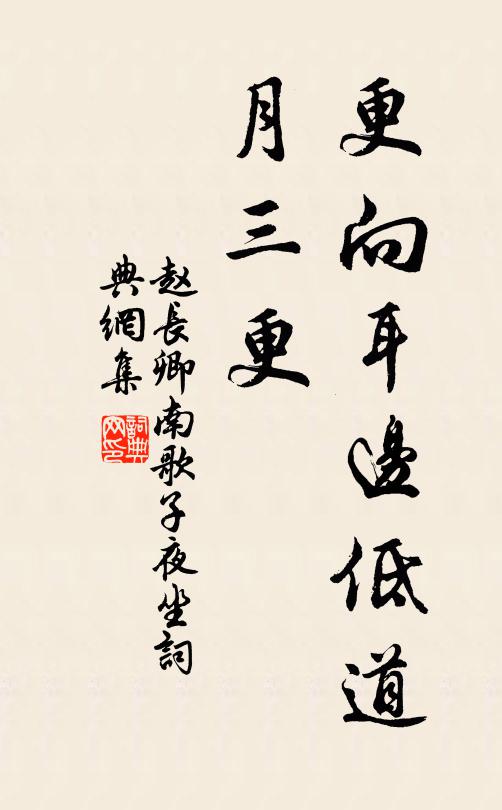 更向耳邊低道
月三更
赵長卿南歌子夜坐詞
典網集
詞典网印